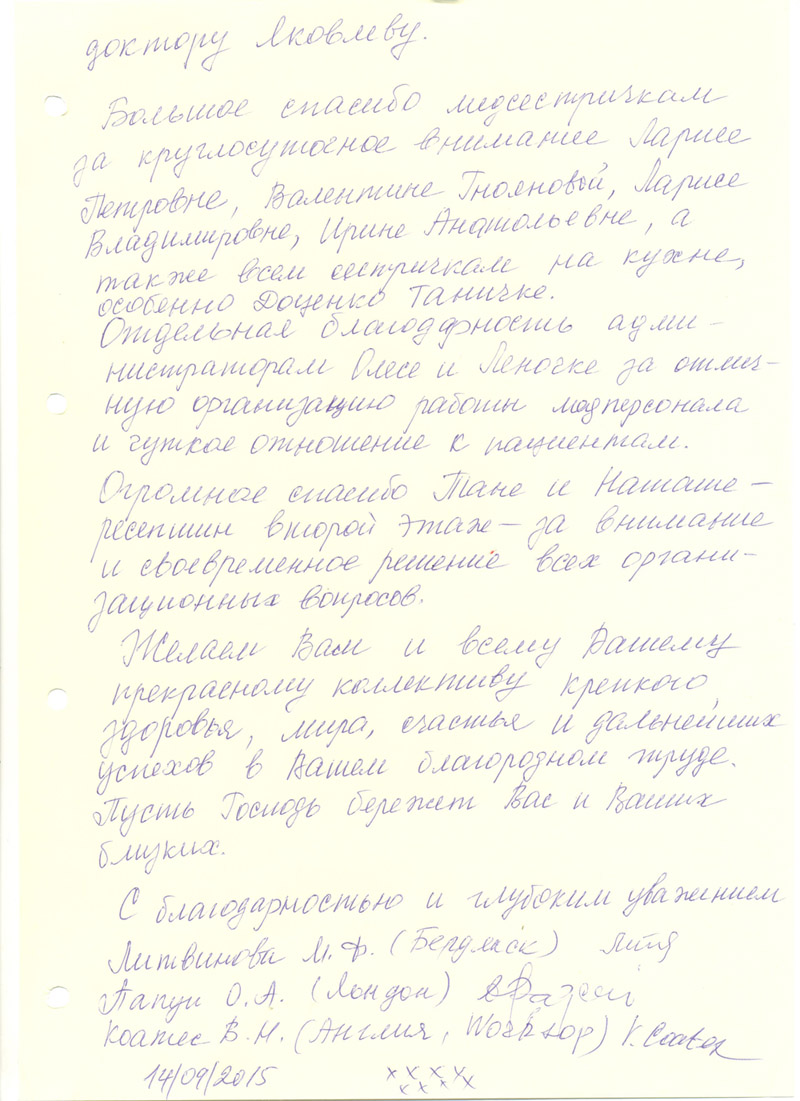 доктору Яковлеву.
Большое спасибо медсестричкам
за круглосуточное внимание Ларисе
Петровне, Валентине Гнояновой, Ларисе
Владимировне, Ирине Анатольевне, а
также всем сестричкам на кухне,
особенно Доценко Таничке.
Отдельная благодарность адми-
нистраторам Олесе и Леночке за отлич-
ную организацию работы медперсонала
и чуткое отношение к пациентам.
Огромное спасибо Тане и Наташе -
ресепшин второй этаж - за внимание
и своевременное решение всех органи-
зационных вопросов.
Желаем Вам и всему Вашему
прекрасному коллективу крепкого
здоровья, мира, счастья и дальнейших
успехов в Вашем благородном труде.
Пусть Господь бережет Вас и Ваших
близких.
С благодарностью и глубоким уважением
Литвинова М.Ф. (Бердянск)
О.А. (Лондон)
Коатес В.Н. (Англия, Worksop) V. Coates
14/09/2015
xxxx
xxxx